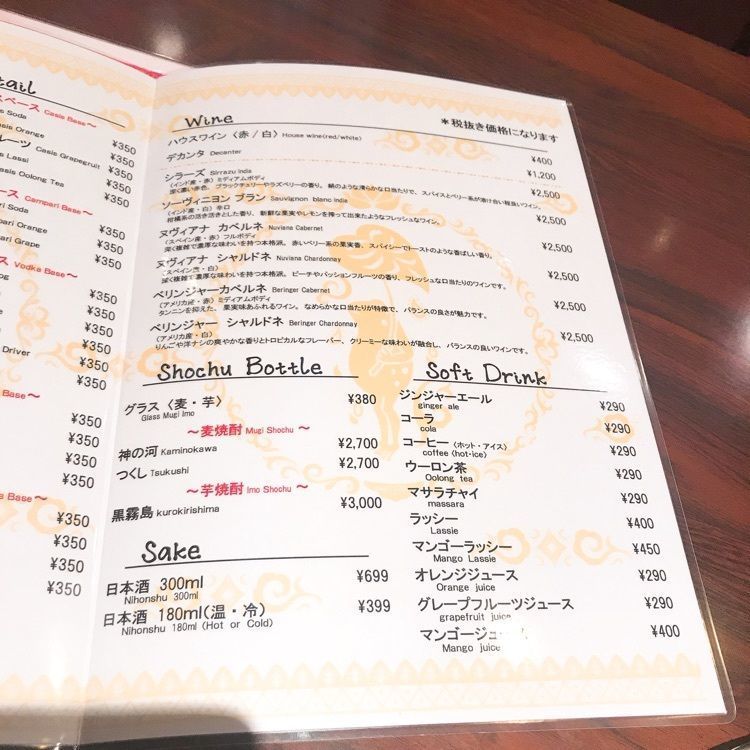 tail
ベース Casis Base～
sis Soda ¥350
asis Orange ¥350
ルーツ Casis Grapefruit ¥350
sis Lassi ¥350
asis Oolong Tea ¥350
ース Campari Base～
ari Soda ¥350
pari Orange ¥350
pari Grape ¥350
ス Vodka Base～
og ¥350
¥350
¥350
¥350
Driver ¥350
Base～
¥350
¥350
¥350
a Base～
¥350
¥350
¥350
¥350
Wine
＊税抜き価格になります
ハウスワイン〈赤/白〉House wine(red/white) ¥400
デカンタ Decanter ¥1,200
シラーズ Sirrazu india ¥2,500
(インド産・赤) ミディアムボディ
深く濃い赤色。ブラックチェリーやラズベリーの香り。絹のような滑らかな口当たりで、スパイスとベリー系が溶け合い程良いワイン。
ソーヴィニヨン ブラン Sauvignon blanc india ¥2,500
(インド産・白) 辛口
柑橘系の活き活きとした香り、新鮮な果実やレモンを搾って出来たようなフレッシュなワイン。
ヌヴィアナ カベルネ Nuviana Cabernet ¥2,500
(スペイン産・赤) フルボディ
深く複雑で濃厚な味わいを持つ本格派。赤いベリー系の果実香、スパイシーでトーストのような香ばしい香り。
ヌヴィアナ シャルドネ Nuviana Chardonnay ¥2,500
(スペイン産・白)
深く複雑で濃厚な味わいを持つ本格派。ピーチやパッションフルーツの香り、フレッシュな口当たりのワインです。
ベリンジャーカベルネ Beringer Cabernet ¥2,500
(アメリカ産・赤) ミディアムボディ
タンニンを抑えた、果実味あふれるワイン。なめらかな口当たりが特徴で、バランスの良さが魅力です。
ベリンジャー シャルドネ Beringer Chardonnay ¥2,500
(アメリカ産・白)
りんごや洋ナシの爽やかな香りとトロピカルなフレーバー、クリーミーな味わいが融合し、バランスの良いワインです。
Shochu Bottle
グラス〈麦・芋〉 ¥380
Glass Mugi Imo
～麦焼酎 Mugi Shochu～
神の河 Kaminokawa ¥2,700
つくし Tsukushi ¥2,700
～芋焼酎 Imo Shochu～
黒霧島 kurokirishima ¥3,000
Sake
日本酒 300ml ¥699
Nihonshu 300ml
日本酒 180ml(温・冷) ¥399
Nihonshu 180ml (Hot or Cold)
Soft Drink
ジンジャーエール ¥290
ginger ale
コーラ ¥290
cola
コーヒー (ホット・アイス) ¥290
coffee (hot・ice)
ウーロン茶 ¥290
Oolong tea
マサラチャイ ¥290
massara
ラッシー ¥400
Lassie
マンゴーラッシー ¥450
Mango Lassie
オレンジジュース ¥290
Orange juice
グレープフルーツジュース ¥290
grapefruit juice
マンゴージュース ¥400
Mango juice